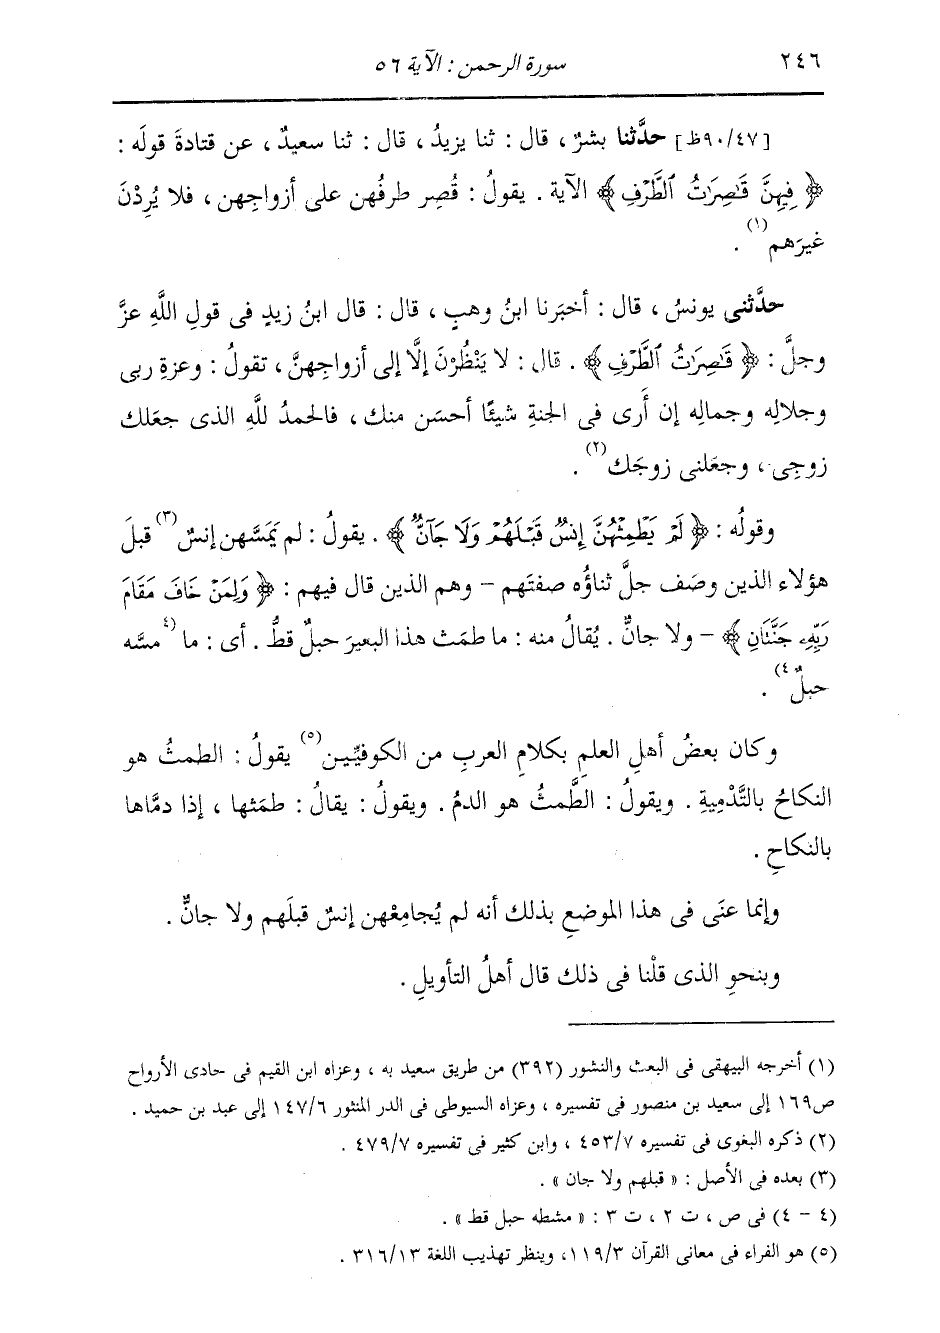 ٢٤٦ سورة الرحمن : الآية ٥٦
[٩٠/٤٧ظ] حدَّثنا بشرٌ ، قال : ثنا يزيدُ ، قال : ثنا سعيدٌ ، عن قتادةَ قولَه :
﴿ فِيهِنَّ قَٰصِرَٰتُ ٱلطَّرْفِ ﴾ الآية . يقولُ : قُصِر طرفُهن على أزواجِهن ، فلا يُرِدْنَ
غيرَهم(١) .
حدَّثنى يونسُ ، قال : أخبَرنا ابنُ وهبٍ ، قال : قال ابنُ زيدٍ فى قولِ اللَّهِ عزَّ
وجلَّ : ﴿ قَٰصِرَٰتُ ٱلطَّرْفِ ﴾ . قال : لا يَنْظُرْنَ إلَّا إلى أزواجِهنَّ ، تقولُ : وعزةِ ربى
وجلالِه وجمالِه إن أَرى فى الجنةِ شيئًا أحسَن منك ، فالحمدُ للَّهِ الذى جعَلك
زوجِى ، وجعَلنى زوجَك(٢) .
وقولُه : ﴿ لَمْ يَطْمِثْهُنَّ إِنسٌ قَبْلَهُمْ وَلَا جَآنٌّ ﴾ . يقولُ : لم يَمَسَّهن إنسٌ(٣) قبلَ
هؤلاء الذين وصَف جلَّ ثناؤُه صفتَهم – وهم الذين قال فيهم : ﴿ وَلِمَنْ خَافَ مَقَامَ
رَبِّهِۦ جَنَّتَانِ ﴾ – ولا جانٌّ . يُقالُ منه : ما طمَث هذا البعيرَ حبلٌ قطُّ . أى : ما (٤مسَّه
حبلٌ٤) .
وكان بعضُ أهلِ العلمِ بكلامِ العربِ من الكوفيِّين(٥) يقولُ : الطمثُ هو
النكاحُ بالتَّدْمِيةِ . ويقولُ : الطَّمثُ هو الدمُ . ويقولُ : يقالُ : طمَثها ، إذا دمَّاها
بالنكاحِ .
وإنما عنَى فى هذا الموضعِ بذلك أنه لم يُجامِعْهن إنسٌ قبلَهم ولا جانٌّ .
وبنحوِ الذى قلْنا فى ذلك قال أهلُ التأويلِ .
(١) أخرجه البيهقى فى البعث والنشور (٣٩٢) من طريق سعيد به ، وعزاه ابن القيم فى حادى الأرواح
ص١٦٩ إلى سعيد بن منصور فى تفسيره ، وعزاه السيوطى فى الدر المنثور ١٤٧/٦ إلى عبد بن حميد .
(٢) ذكره البغوى فى تفسيره ٤٥٣/٧ ، وابن كثير فى تفسيره ٤٧٩/٧ .
(٣) بعده فى الأصل : « قبلهم ولا جان » .
(٤ – ٤) فى ص ، ت ٢ ، ت ٣ : « مشطه حبل قط » .
(٥) هو الفراء فى معانى القرآن ١١٩/٣ ، وينظر تهذيب اللغة ٣١٦/١٣ .